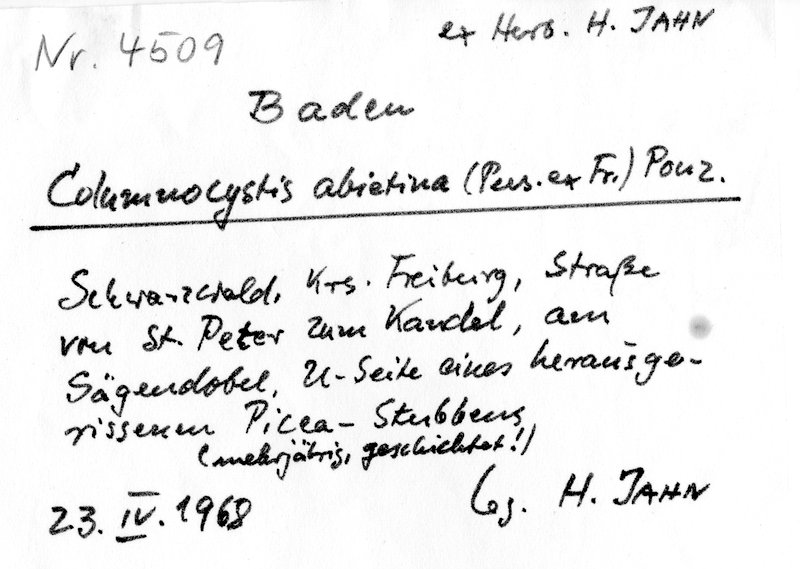 Nr. 4509
ex Herb. H. JAHN
Baden
Columnocystis abietina (Pers. ex Fr.) Pouz.
Schwarzwald, Krs. Freiburg, Straße
von St. Peter zum Kandel, am
Sägendobel, U-Seite eines herausge-
rissenen Picea-Stubbens
(mehrjährig, geschichtet!)
23. IV. 1968
Leg. H. JAHN